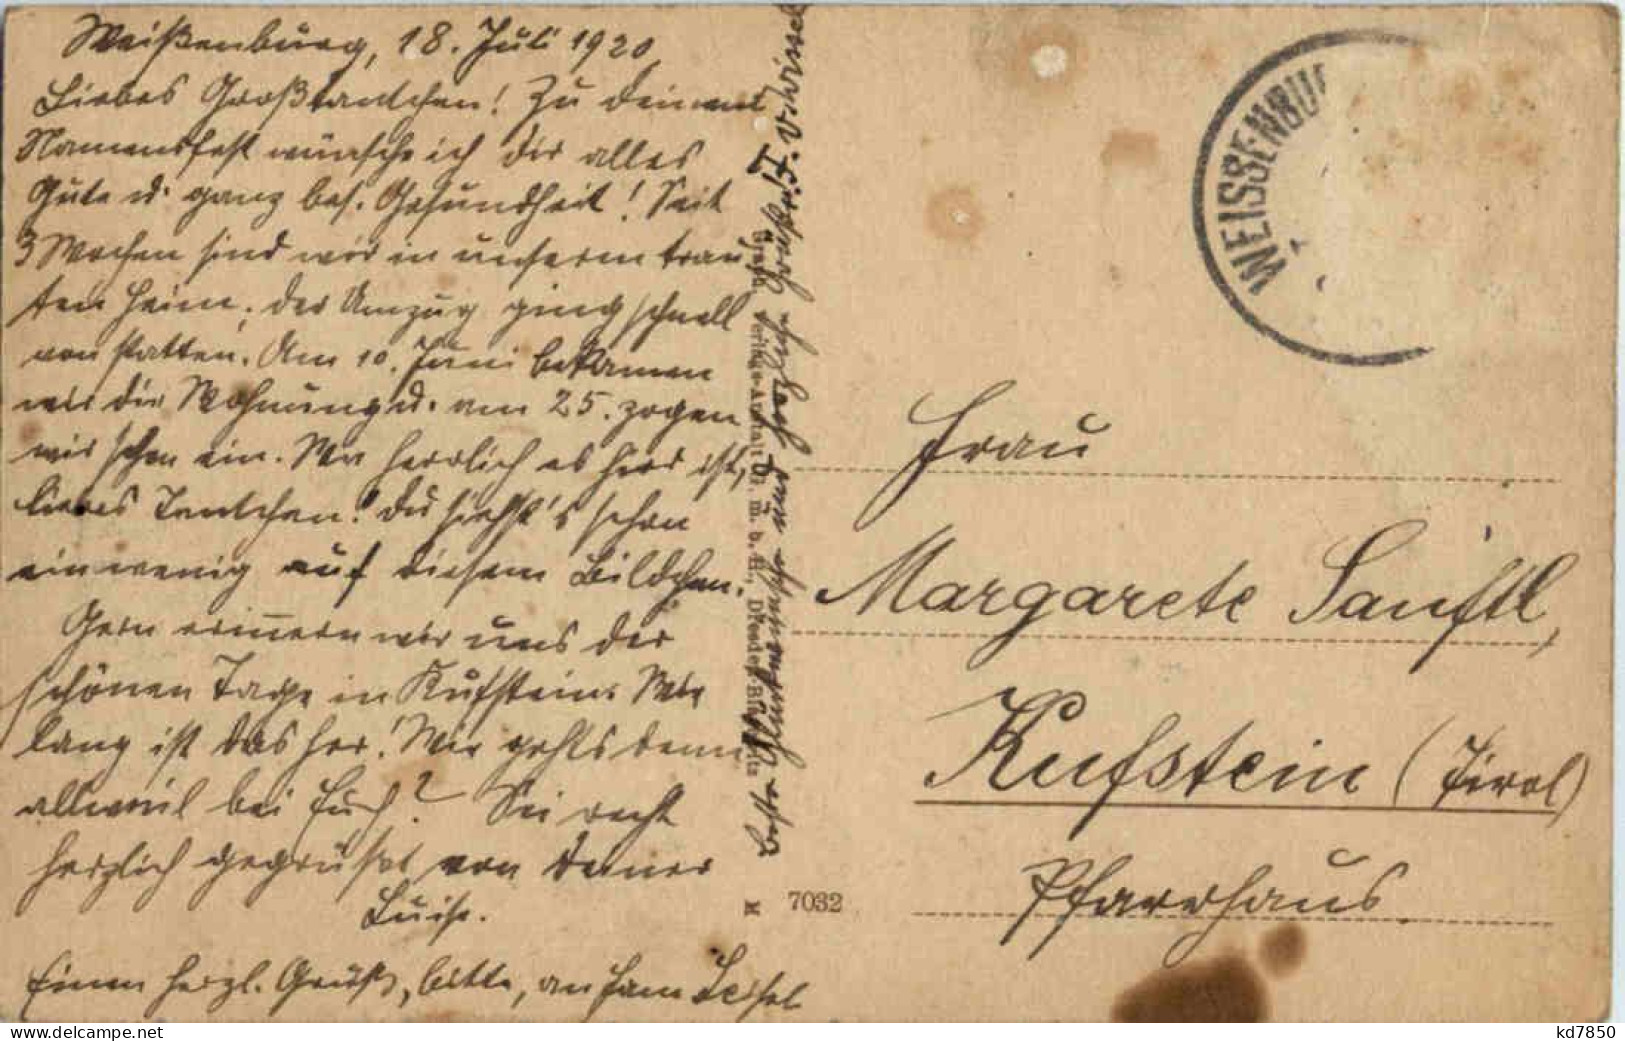 Weißenburg, 18. Juli 1920
Liebes Großtantchen! Zu deinem
Namensfest wünsche ich dir alles
Gute u. ganz bes. Gesundheit! Seit
3 Wochen sind wir in unserm trau-
ten Heim, der Umzug ging schnell
von statten. Am 10. Juni bekamen
wir die Wohnung u. am 25. zogen
wir schon ein. Wie herrlich es hier ist,
liebes Tantchen! Du siehst's schon
ein wenig auf diesem Bildchen.
Gern erinnern wir uns der
schönen Tage in Kufstein. Wie
lang ist das her! Wie gehts denn
allweil bei Euch? Sei recht
herzlich gegrüßt von Deiner
Luise.
Einen herzl. Gruß, bitte, an Fam.
Beste Glückwünsche und herzliche Grüße
M 7032
WEISSENBU
Frau
Margarete Sanftl,
Kufstein (Tirol)
Pfarrhaus
kd7850